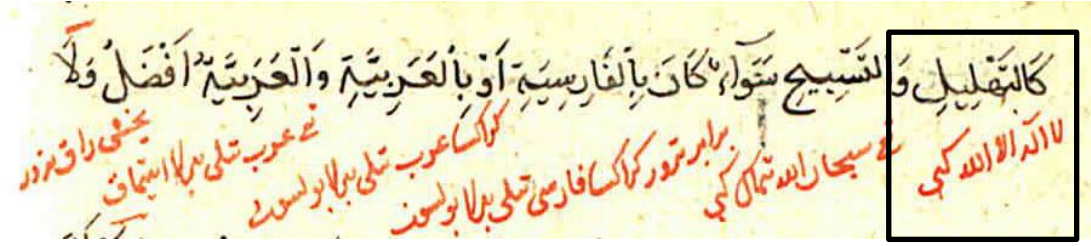 كَالتَّهْلِيلِ وَالتَّسْبِيحِ سَوَآءٌ كَانَ بِالْفَارِسِيَةِ اَوْ بِالْعَرَبِيَّةِ وَالْعَرَبِيَّةُ اَفْضَلُ وَلَا
لا اله الا الله كبي
سبحان الله تماك كبي
برابر درور كراكسا فارسى تيلى بيرلا بولسون
كراكسا عرب تيلى بيرلا بولسون
عرب تيلى بيرلا ايتماق
يخشى راق درور